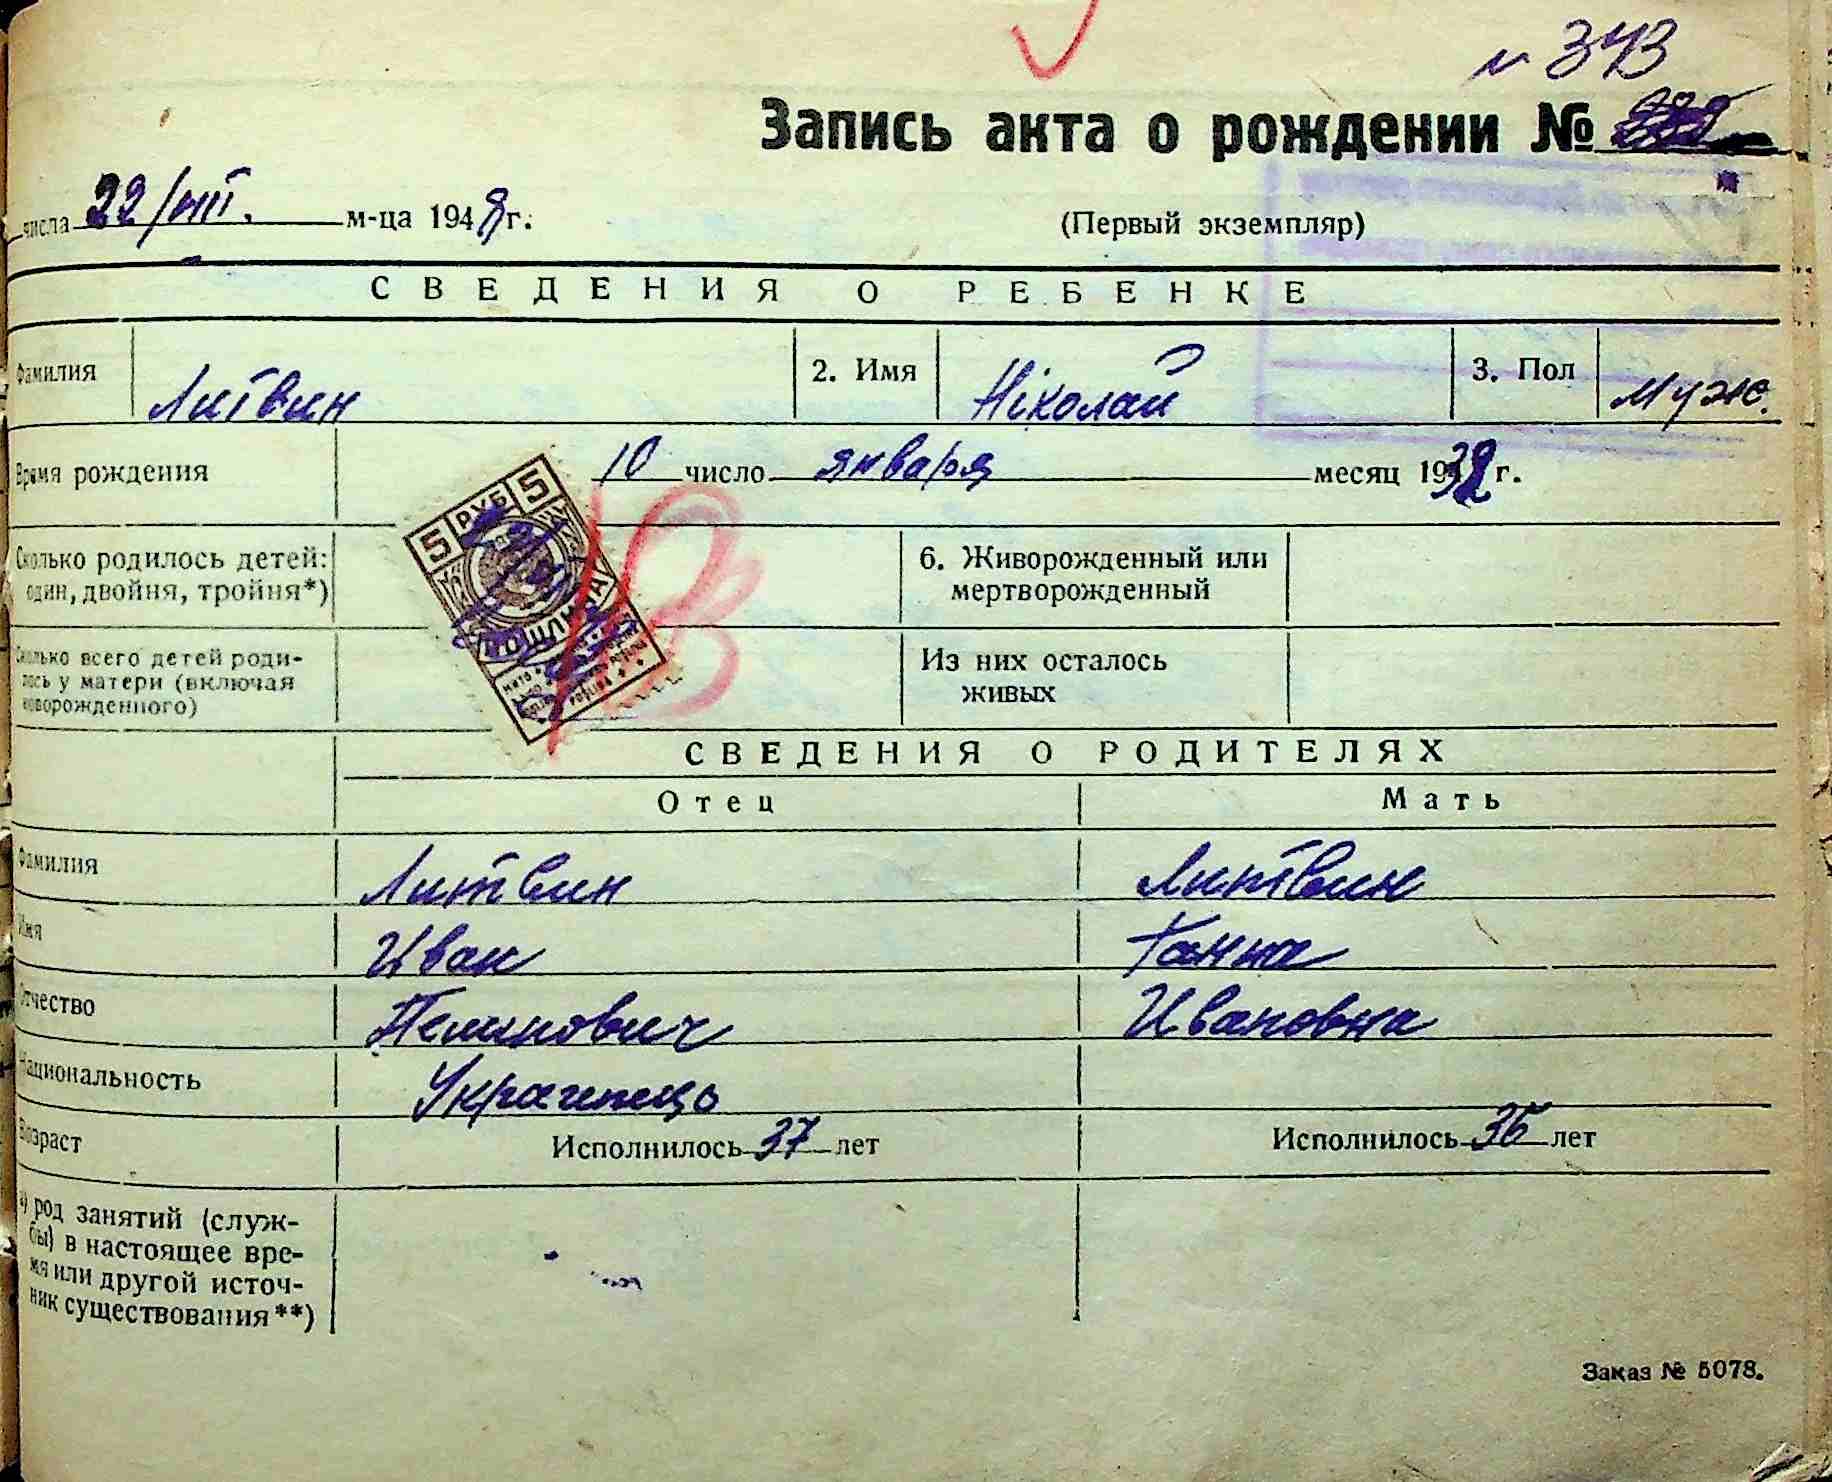 № 343
Запись акта о рождении №
числа 22/VIII. м-ца 1948 г.
(Первый экземпляр)
СВЕДЕНИЯ О РЕБЕНКЕ
Фамилия Литвин 2. Имя Ніколай 3. Пол Муж.
Время рождения 10 число января месяц 1932 г.
Сколько родилось детей: один, двойня, тройня*)
6. Живорожденный или мертворожденный
5 РУБ 5
ПОШЛИНА
Сколько всего детей роди-
лось у матери (включая
новорожденного)
Из них осталось
живых
СВЕДЕНИЯ О РОДИТЕЛЯХ
Отец Мать
Фамилия Литвин Литвин
Имя Иван Ганна
Отчество Ивановна
Национальность Украинець
Возраст Исполнилось 37 лет Исполнилось 36 лет
а) род занятий (служ-
бы) в настоящее вре-
мя или другой источ-
ник существования**)
Заказ № 5078.